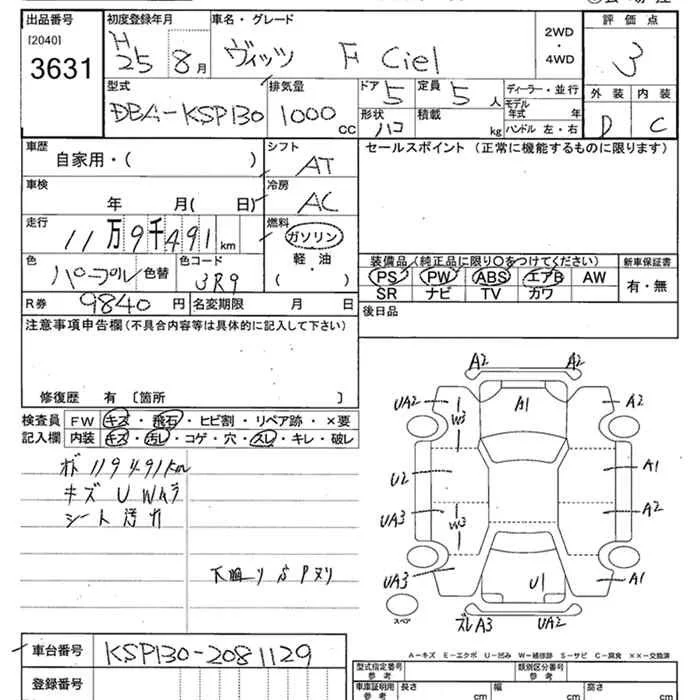 出品番号 初度登録年月 車名・グレード 評価点
[2040] H
3631 25 8月 ヴィッツ F Ciel 2WD・4WD 3
型式 排気量 ドア 定員 ディーラー・並行 外装 内装
DBA-KSP130 1000 CC 5 5人 モデル年式 年 D C
形状 ハコ 積載 kg ハンドル 左・右
車歴 シフト セールスポイント (正常に機能するものに限ります)
自家用・( ) AT
車検 冷房
年 月( 日) AC
走行 燃料
11万9千491km ガソリン
軽・油
( )
色 色替 色コード
パープル 3R9
装備品(純正品に限り○をつけてください) 新車保証書
PS PW ABS エアB AW 有・無
SR ナビ TV カワ
R券 9840円 名変期限 月 日 後日品
注意事項申告欄(不具合内容等は具体的に記入して下さい)
修復歴 有 〔箇所 〕
検査員 FW キズ・飛石・ヒビ割・リペア跡・×要
記入欄 内装 キズ・汚レ・コゲ・穴・スレ・キレ・破レ
119491km
キズ U Wムラ
シート 汚れ
A2 A2
UA2 W3 A1 A2
U2 A1
UA3 W3 A2
UA3 U1 A1
スペア ズレA3 UA2
A-キズ E-エクボ U-凹み W-補修跡 S-サビ C-腐食 ××-交換済
車台番号 KSP130-2081129
登録番号
型式指定番号 参考 類別区分番号 参考
車庫証明用 参考 長さ cm 幅 cm 高さ cm